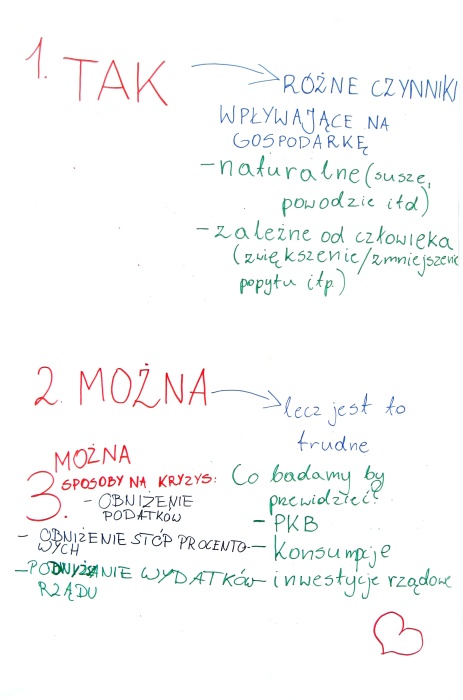 1. TAK
RÓŻNE CZYNNIKI
WPŁYWAJĄCE NA
GOSPODARKĘ
- naturalne (susze,
powodzie itd)
- zależne od człowieka
(zwiększenie/zmniejszenie
popytu itp.)
2. MOŻNA
lecz jest to
trudne
Co badamy by
przewidzieć?
- PKB
- Konsumpcje
- inwestycje rządowe
3. MOŻNA
SPOSOBY NA KRYZYS:
- OBNIŻENIE
PODATKÓW
- OBNIŻENIE STÓP PROCENTO-
WYCH
- PODWYŻSZANIE WYDATKÓW
RZĄDU